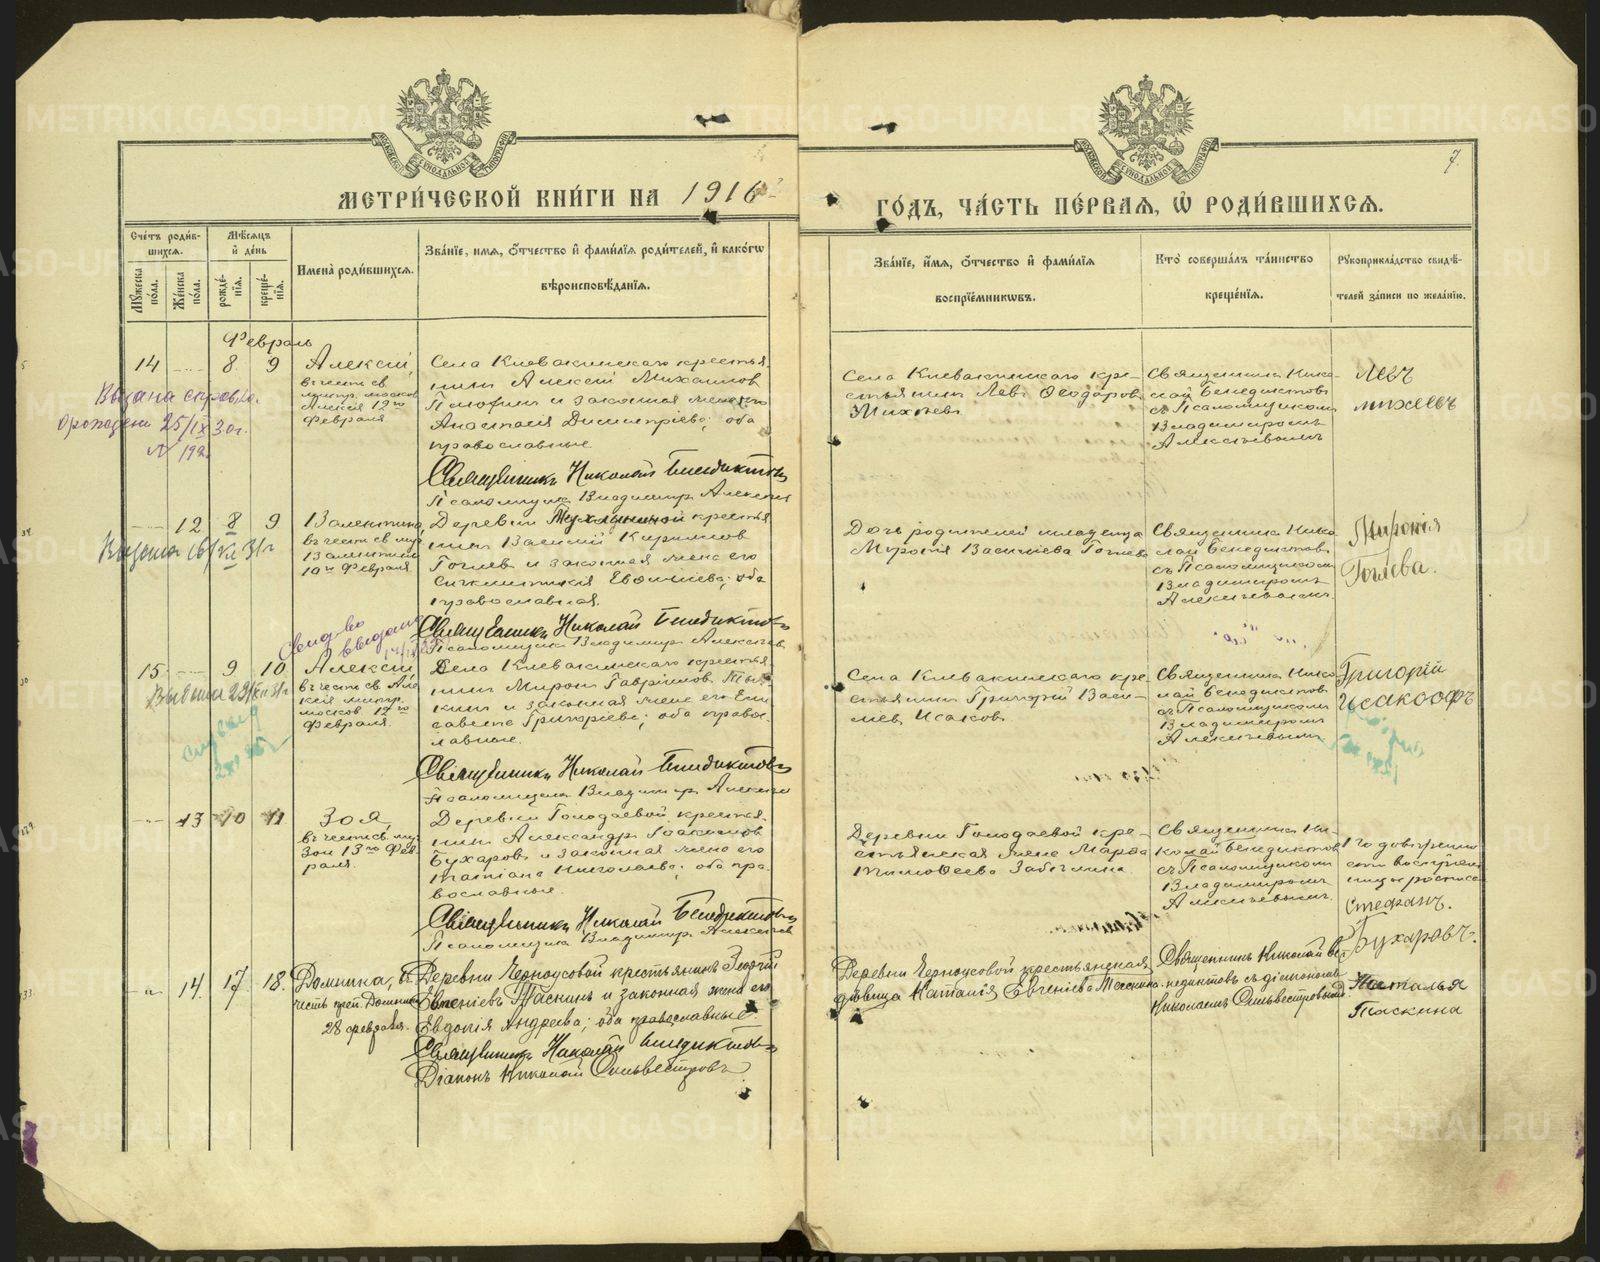 МЕТРИ́ЧЕСКОЙ КНИ́ГИ НА 1916
ГО́ДЪ, ЧА́СТЬ ПЕ́РВАЯ, Ѡ РОДИ́ВШИХСЯ.
7.
Сче́тъ роди́в-
шихся.
Мꙋ́жеска
по́ла.
Же́нска
по́ла.
Мѣ́сяцъ
и де́нь
рожде́-
нїя.
креще́-
нїя.
Имена̀ роди́вшихся.
Зва́нїе, и́мя, ѻ́тчество и фами́лїя роди́телей, и како́гѡ
вѣроисповѣ́данїя.
Зва́нїе, и́мя, ѻ́тчество и фами́лїя
воспрїе́мникѡвъ.
Кто̀ соверша́лъ та́инство
креще́нїя.
Рꙋкоприкла́дство свидѣ́-
телей за́писи по жела́нїю.
Февраль
14
8
9
Алексій,
въ честь св.
митр. москов
Алексія 12го
февраля
Села Клевакинскаго крестья-
нинъ Алексій Михаиловъ
и законная жена его
Анастасія Димитріева; оба
православные.
Священникъ Николай Бенедиктовъ
Псаломщикъ Владимиръ Алексѣевъ
Села Клевакинскаго кре-
стьянинъ Левъ Ѳеодоровъ
Михѣевъ.
Священникъ Нико-
лай Бенедиктовъ
съ Псаломщикомъ
Владимиромъ
Алексѣевымъ
Левъ
михеевъ
Выдана справка.
о рождени 25/IX 30г.
12
8
9
Валентина,
въ честь св. муч.
Валентины
10го февраля
Деревни крестья-
нинъ Василій Кириловъ
Гоглевъ и законная жена его
Синклитикія; оба
православные.
Священникъ Николай Бенедиктовъ
Псаломщикъ Владимиръ Алексѣевъ
Дочь родителей младенца
Миропія Василіева Гоглева
Священникъ Нико-
лай Бенедиктовъ
съ Псаломщикомъ
Владимиромъ
Алексѣевымъ.
Миропія
Гоглева.
15
9
10
Алексій
въ честь св. Але-
ксія митр.
москов 12го
февраля.
Села Клевакинскаго крестья-
нинъ Миронъ Гавриловъ
и законная жена его Ели-
савета Григорьева; оба правос-
лавные.
Священникъ Николай Бенедиктовъ
Псаломщикъ Владимиръ Алексѣевъ
Села Клевакинскаго кре-
стьянинъ Григорій Васи-
лiевъ Исаковъ.
Священникъ Нико-
лай Бенедиктовъ
съ Псаломщикомъ
Владимиромъ
Алексѣевымъ
Григорій
Исакоофъ
13
10
11
Зоя,
въ честь св. муч.
Зои 13го Фев-
раля.
Деревни Голодаевой крестья-
нинъ Александръ
Бухаровъ и законная жена его
Татіана Николаева; оба пра-
вославные.
Священникъ Николай Бенедиктовъ
Псаломщикъ Владимиръ Алексѣевъ
Деревни Голодаевой кре-
стьянская жена Марѳа
Тимоѳеева
Священникъ Ни-
колай Бенедиктовъ
съ Псаломщикомъ
Владимиромъ
Алексѣевымъ.
Стефанъ.
Бухаровъ.
14.
17
18.
Домника, въ
честь преп. Домники
28 февраля.
Деревни Черноусовой крестьянинъ Георгій
Евгеніевъ Таскинъ и законная жена его
Евдокія Андреева; оба православные.
Священникъ Николай Бенедиктовъ
Діаконъ Николай Сильвестровъ
Деревни Черноусовой крестьянская
дѣвица Наталія Евгеніева Таскина.
Священникъ Николай Бе-
недиктовъ съ діакономъ
Николаемъ Сильвестровымъ
Наталья
Таскина
METRIKI.GASO-URAL.RU